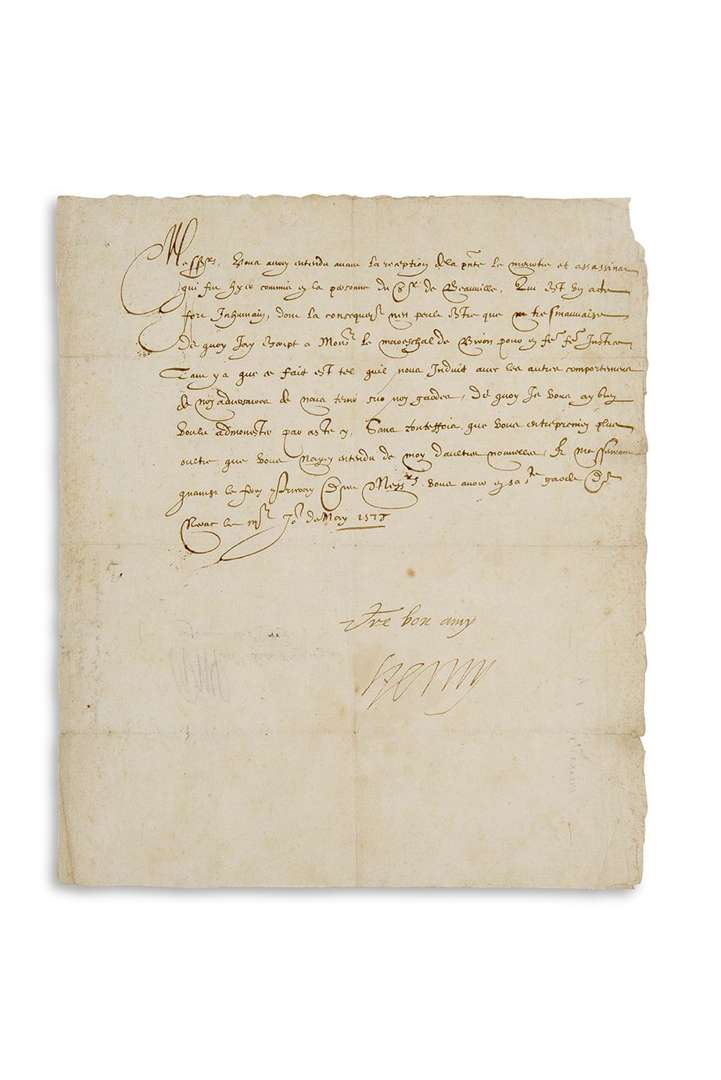 Messrs. Vous aurez entendu avant la reception de la pnte le meurtre et assassinat
qui fut hyer commis en la personne du Sr de Beauville, Qui est un acte
fort Inhumain, dont la consequense nen peult estre que tresmauvaise
De quoy Jay escript a Monsr le mareschal de Biron pour en fe. fe. Justice
Tant y a que ce fait est tel quil nous Induit avec les autres comportemens
de noz adversaires de nous tenir sur noz gardes, De quoy Je vous ay bien
voulu admonester par ceste cy, Sans toutesfois que vous entrepreniez plus
oultre que vous nayez entendu de moy daultres nouvelles, Et
Dieu Messrs vous avoir en sa ste garde De
Nerac le Jor de May 1577
Vre bon amy
Henry